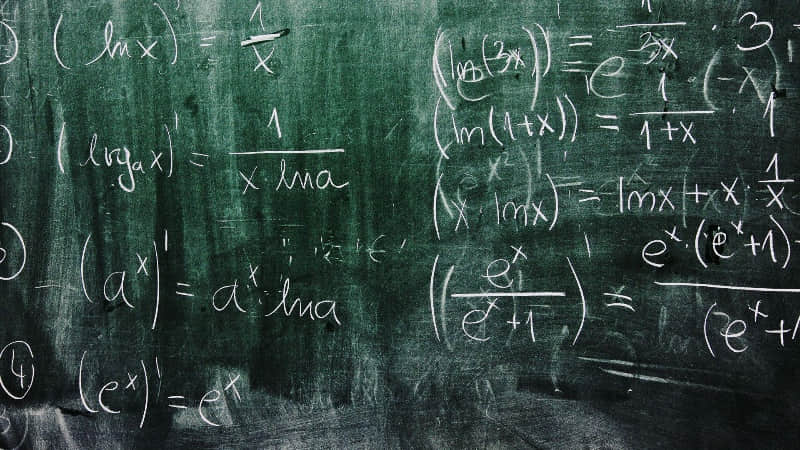 (ln x)' = 1/x
(log_a x)' = 1/(x · ln a)
(a^x)' = a^x · ln a
4
(e^x)' = e^x
(ln(3x))' = 1/3x · 3
(ln(1+x))' = 1/(1+x) · 1
(x · ln x)' = ln x + x · 1/x
(e^x/(e^x+1))' = e^x · (e^x+1)-/(e^x+1